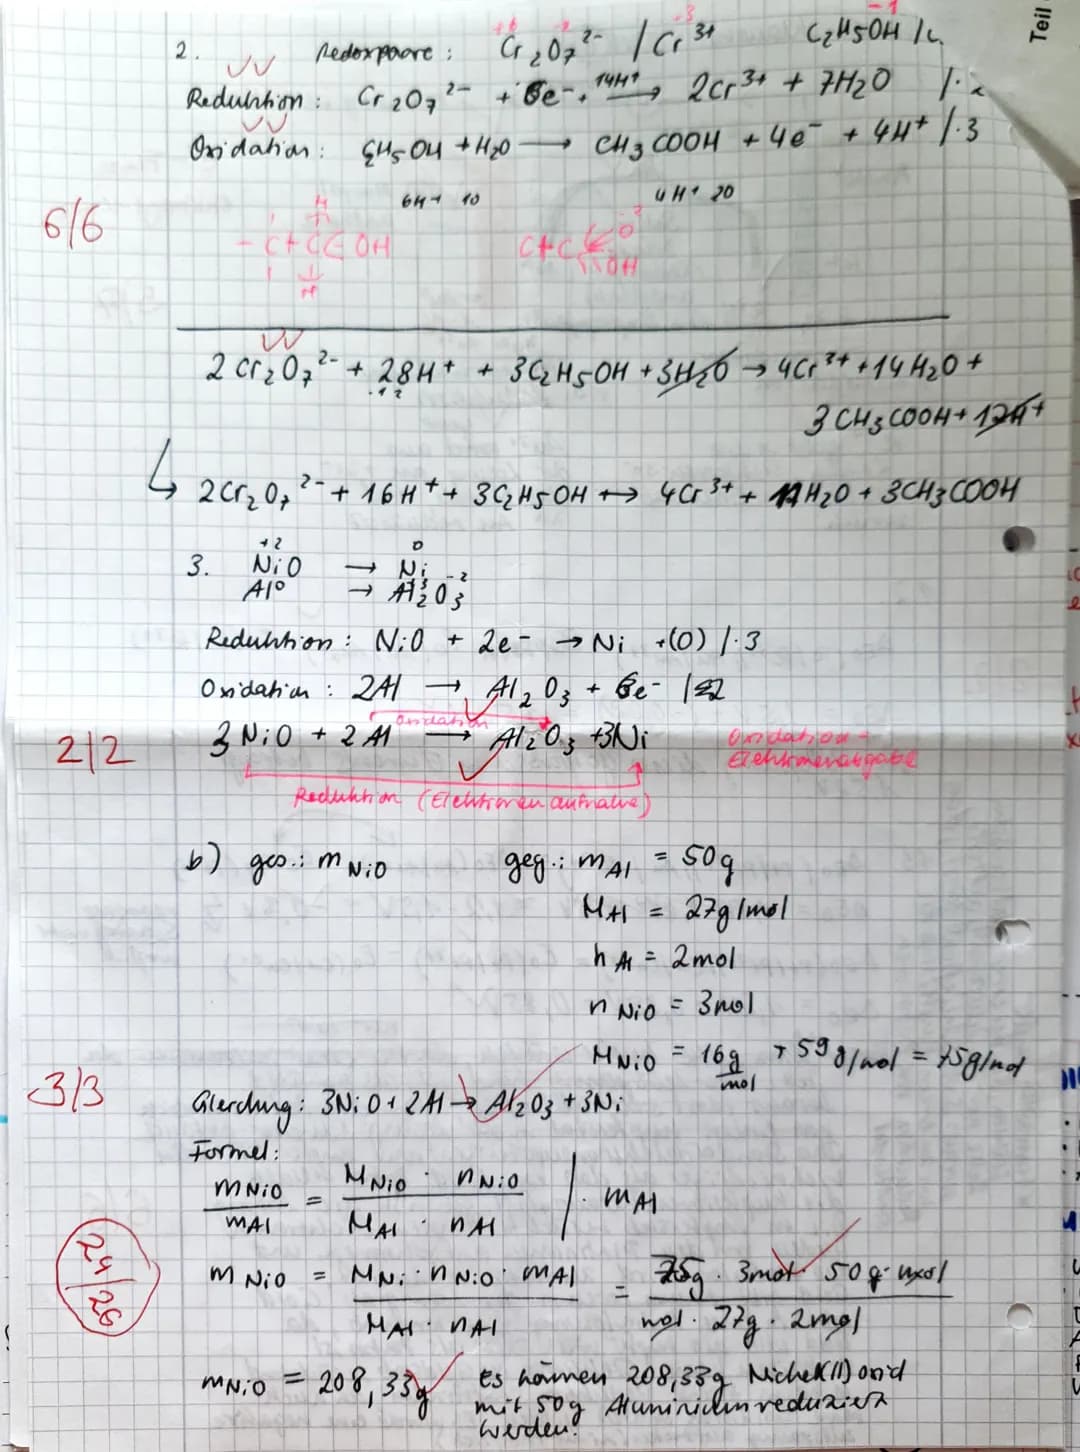 Teil
2. Redoxpaare: Cr₂O₇²⁻ / Cr³⁺ C₂H₅OH /
+6 -2 +3 -1
Reduktion: Cr₂O₇²⁻ + 6e⁻ + 14H⁺ → 2Cr³⁺ + 7H₂O /·2
Oxidation: C₂H₅OH + H₂O → CH₃COOH + 4e⁻ + 4H⁺ /·3
6H+ 1O 4H+ 2O
6/6
H
- C + C OH C+C O -2
H OH
2Cr₂O₇²⁻ + 28H⁺ + 3C₂H₅OH + 3H₂O → 4Cr³⁺ + 14H₂O +
-12
3CH₃COOH + 12H⁺
↳ 2Cr₂O₇²⁻ + 16H⁺ + 3C₂H₅OH ↔ 4Cr³⁺ + 11H₂O + 3CH₃COOH
+2 0
3. NiO → Ni
+3 -2
Al⁰ → Al₂O₃
Reduktion: NiO + 2e⁻ → Ni +(O) /·3
Oxidation: 2Al → Al₂O₃ + 6e⁻ /
Oxidation
2/2
3NiO + 2Al → Al₂O₃ + 3Ni
Oxidation =
Elektronenabgabe
Reduktion (Elektronenaufnahme)
b) ges.: m NiO geg.: m Al = 50g
M Al = 27g/mol
n Al = 2mol
n NiO = 3mol
M NiO = 16g/mol + 59g/mol = 75g/mol
3/3
Gleichung: 3NiO + 2Al → Al₂O₃ + 3Ni
Formel:
m NiO / m Al = M NiO · n NiO / M Al · n Al | · m Al
24/26
m NiO = M Ni · n NiO · m Al / M Al · n Al = 75g · 3mol · 50g · mol / mol · 27g · 2mol
m NiO = 208,33g Es können 208,33g Nickel(II)oxid
mit 50g Aluminium reduziert
werden.